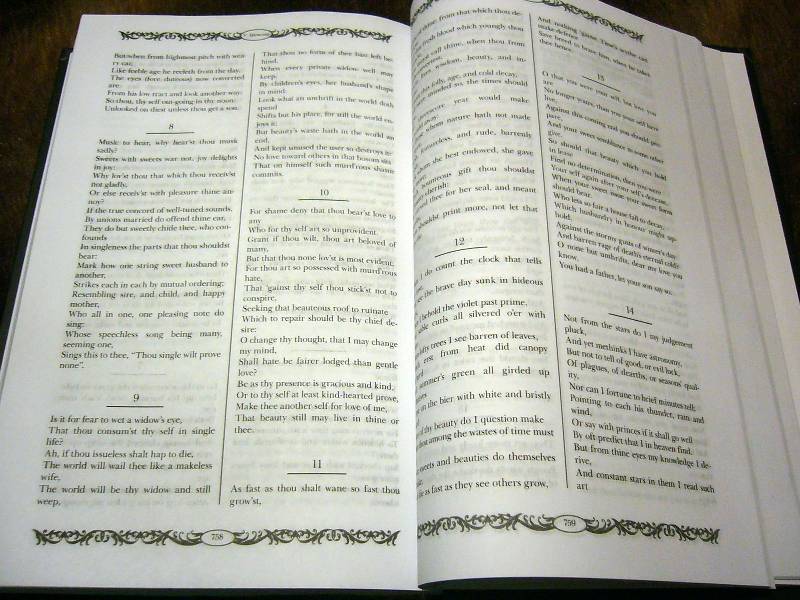 But when from highmost pitch with wea
ry car,
Like feeble age he reeleth from the day,
The eyes (fore duteous) now converted
are
From his low tract and look another way:
So thou, thy self out-going in thy noon:
Unlooked on diest unless thou get a son.
8
Music to hear, why hear'st thou music
sadly?
Sweets with sweets war not, joy delights
in joy:
Why lov'st thou that which thou receiv'st
not gladly,
Or else receiv'st with pleasure thine an-
noy?
If the true concord of well-tuned sounds,
By unions married do offend thine ear,
They do but sweetly chide thee, who con-
founds
In singleness the parts that thou shouldst
bear:
Mark how one string sweet husband to
another,
Strikes each in each by mutual ordering;
Resembling sire, and child, and happy
mother,
Who all in one, one pleasing note do
sing:
Whose speechless song being many,
seeming one,
Sings this to thee, "Thou single wilt prove
none".
9
Is it for fear to wet a widow's eye,
That thou consum'st thy self in single
life?
Ah, if thou issueless shalt hap to die,
The world will wail thee like a makeless
wife,
The world will be thy widow and still
weep,
That thou no form of thee hast left be-
hind,
When every private widow well may
keep,
By children's eyes, her husband's shape
in mind:
Look what an unthrift in the world doth
spend
Shifts but his place, for still the world en-
joys it;
But beauty's waste hath in the world an
end,
And kept unused the user so destroys it:
No love toward others in that bosom sits
That on himself such murd'rous shame
commits.
10
For shame deny that thou bear'st love to
any
Who for thy self art so unprovident.
Grant if thou wilt, thou art beloved of
many,
But that thou none lov'st is most evident:
For thou art so possessed with murd'rous
hate,
That 'gainst thy self thou stick'st not to
conspire,
Seeking that beauteous roof to ruinate
Which to repair should be thy chief de-
sire:
O change thy thought, that I may change
my mind,
Shall hate be fairer lodged than gentle
love?
Be as thy presence is gracious and kind,
Or to thy self at least kind-hearted prove,
Make thee another self for love of me,
That beauty still may live in thine or
thee.
11
As fast as thou shalt wane so fast thou
grow'st,
758
from that which thou de-
fresh blood which youngly thou
call thine, when thou from
wisdom, beauty, and in-
folly, age, and cold decay,
minded so, the times should
year would make
away:
whom nature hath not made
featureless, and rude, barrenly
whom she best endowed, she gave
bounteous gift thou shouldst
cherish:
thee for her seal, and meant
shouldst print more, not let that
12
do count the clock that tells
the brave day sunk in hideous
behold the violet past prime,
curls all silvered o'er with
trees I see barren of leaves,
erst from heat did canopy
summer's green all girded up
on the bier with white and bristly
thy beauty do I question make
thou among the wastes of time must
sweets and beauties do themselves
as fast as they see others grow,
And nothing 'gainst Time's scythe can
make defence
Save breed to brave him, when he takes
thee hence.
13
O that you were your self, but love you
are
No longer yours, than you your self here
live,
Against this coming end you should pre-
pare,
And your sweet semblance to some other
give.
So should that beauty which you hold
in lease
Find no determination, then you were
Your self again after your self's decease,
When your sweet issue your sweet form
should bear.
Who lets so fair a house fall to decay,
Which husbandry in honour might up-
hold,
Against the stormy gusts of winter's day
And barren rage of death's eternal cold?
O none but unthrifts, dear my love you
know,
You had a father, let your son say so.
14
Not from the stars do I my judgement
pluck,
And yet methinks I have astronomy,
But not to tell of good, or evil luck,
Of plagues, of dearths, or seasons' qual-
ity,
Nor can I fortune to brief minutes tell;
Pointing to each his thunder, rain and
wind,
Or say with princes if it shall go well
By oft predict that I in heaven find.
But from thine eyes my knowledge I de-
rive,
And constant stars in them I read such
art
759